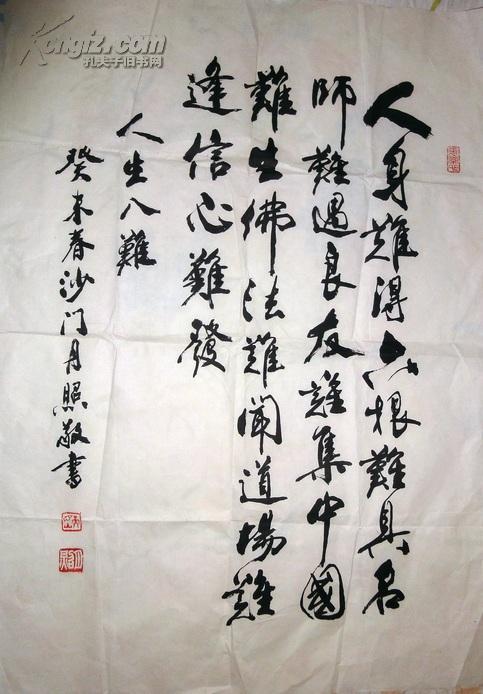 人身難得六根難具名
師難遇良友難集中國
難生佛法難聞道場難
逢信心難發
人生八難
癸未春沙门月照敬書
Kongfz.com
孔夫子旧书网